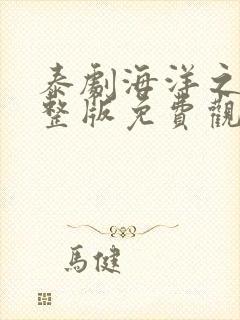 泰劇海洋之
整版免費觀
馬健